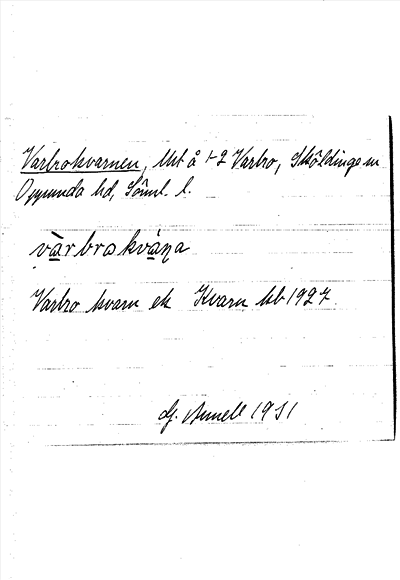 Varbrokvarnen, Utt å 1-2 Varbro, Sköldinge sn
Oppunda hd, Söml. l.
varbrokvaṇa
Varbro kvarn ek Kvarn kb 1927.
G. Arnell 1931